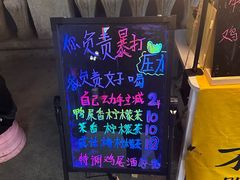 你负责暴打
压力
我负责好喝
自己动手减2元
鸭屎香柠檬茶10
茉香柠檬茶10
柠檬茶12
特调鸡尾酒